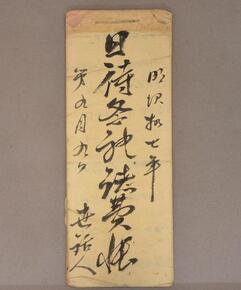 明治拾七年
日待祭礼諸費帳
第九月九日
世話人